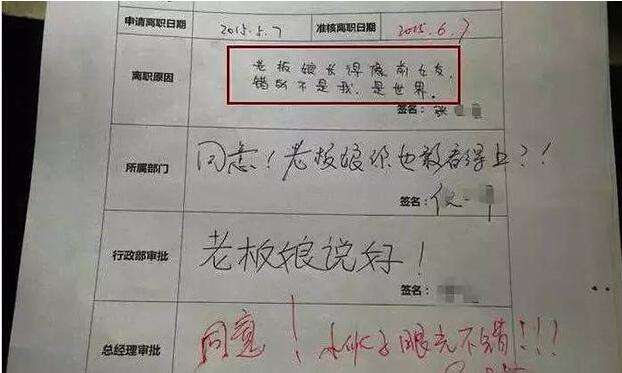 申请离职日期 2015.5.7 准核离职日期 2015.6.7
离职原因
老板娘长得像前女友,
错的不是我,是世界。
签名:张
所属部门
同意!老板娘你也敢看得上?!
签名:
行政部审批
老板娘说好!
签名:
总经理审批
同意!小伙子眼光不错!!!